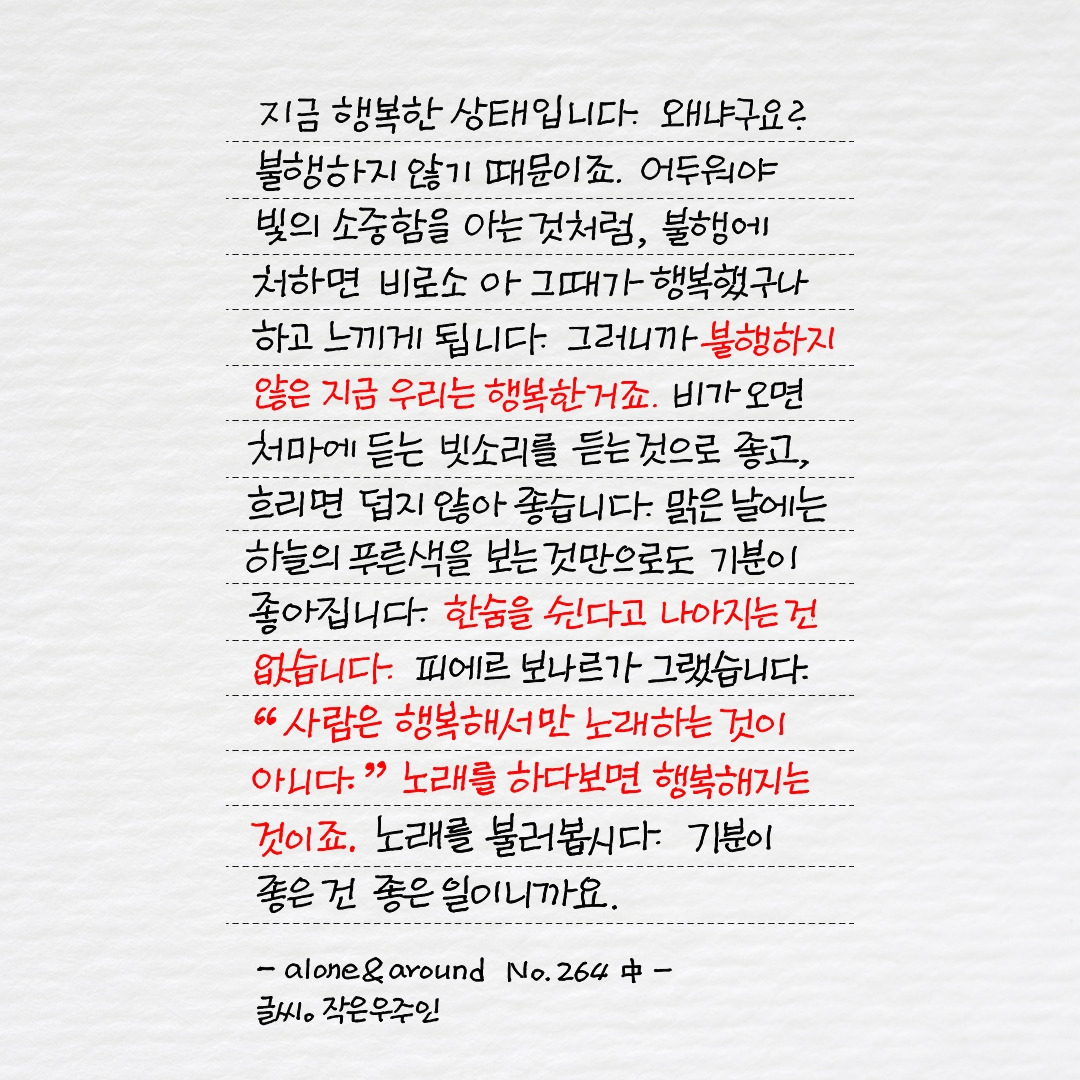 지금 행복한 상태입니다. 왜냐구요?
불행하지 않기 때문이죠. 어두워야
빛의 소중함을 아는 것처럼, 불행에
처하면 비로소 아 그때가 행복했구나
하고 느끼게 됩니다. 그러니까 불행하지
않은 지금 우리는 행복한거죠. 비가 오면
처마에 듣는 빗소리를 듣는 것으로 좋고,
흐리면 덥지 않아 좋습니다. 맑은 날에는
하늘의 푸른색을 보는 것만으로도 기분이
좋아집니다. 한숨을 쉰다고 나아지는 건
없습니다. 피에르 보나르가 그랬습니다.
“사람은 행복해서만 노래하는 것이
아니다.” 노래를 하다보면 행복해지는
것이죠. 노래를 불러봅시다. 기분이
좋은 건 좋은 일이니까요.
- alone&around No.264 中 -
글씨。작은우주인